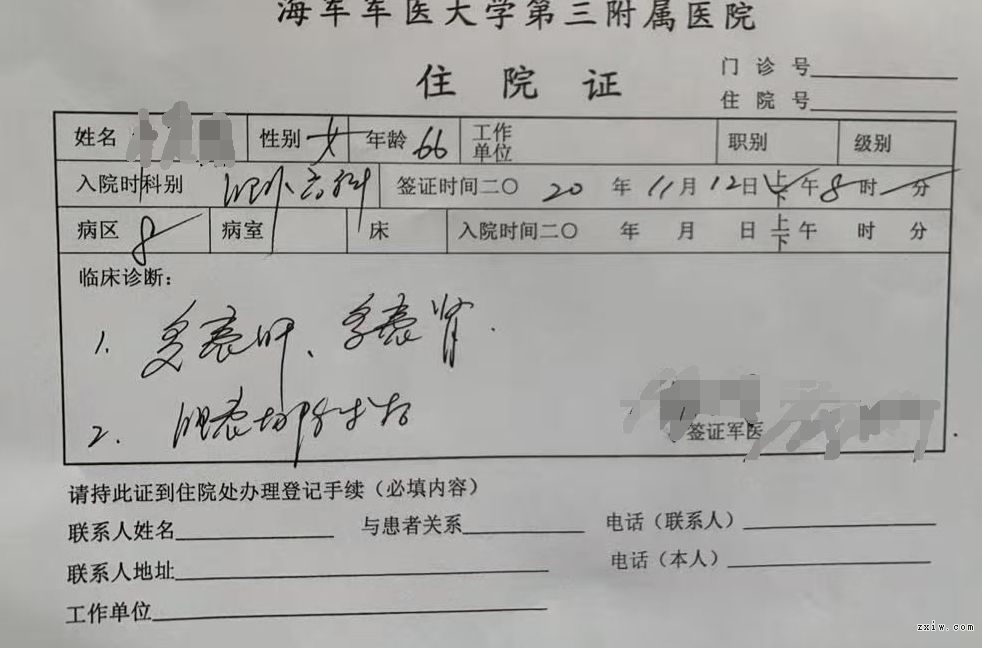 海军军医大学第三附属医院
住院证
门诊号
住院号
姓名 性别 女 年龄 66 工作单位 职别 级别
入院时科别 签证时间二〇 20 年 11 月 12 日 上下午 8 时 分
病区 8 病室 床 入院时间二〇 年 月 日 上下午 时 分
临床诊断:
1. 多囊肝、多囊肾.
2. 胆囊切除术后
签证军医
请持此证到住院处办理登记手续(必填内容)
联系人姓名 与患者关系 电话(联系人)
联系人地址 电话(本人)
工作单位
zxiw.com